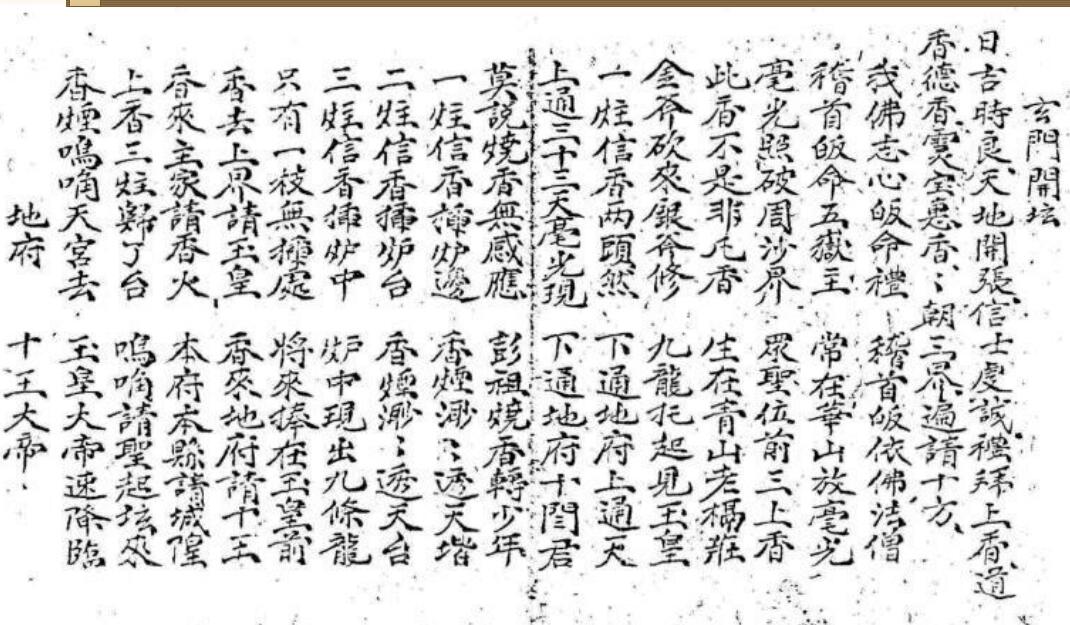 玄門開坛
日吉時良天地開張信士虔誠禮拜上香道
香德香靈宝惠香〻朝三界遍請十方
我佛志心皈命禮 稽首皈依佛法僧
稽首皈命五嶽主 常在華山放毫光
毫光照破周沙界 眾聖位前三上香
此香不是非凡香 生在青山老檽粧
金斧砍來銀斧修 九龍托起見玉皇
一炷信香两頭然 下通地府上通天
上通三十三天毫光現 下通地府十閆君
莫說燒香無感應 彭祖燒香轉少年
一炷信香插炉邊 香煙渺〻透天堦
二炷信香插炉台 香煙渺〻透天台
三炷信香插炉中 炉中現出九條龍
只有一枝無插處 將來捧在玉皇前
香去上界請玉皇 香來地府請十王
香來主家請香火 本府本縣請城隍
上香三炷歸了台 鳴角請聖起坛來
香煙鳴角天宮去 玉皇大帝速降臨
地府 十王大帝